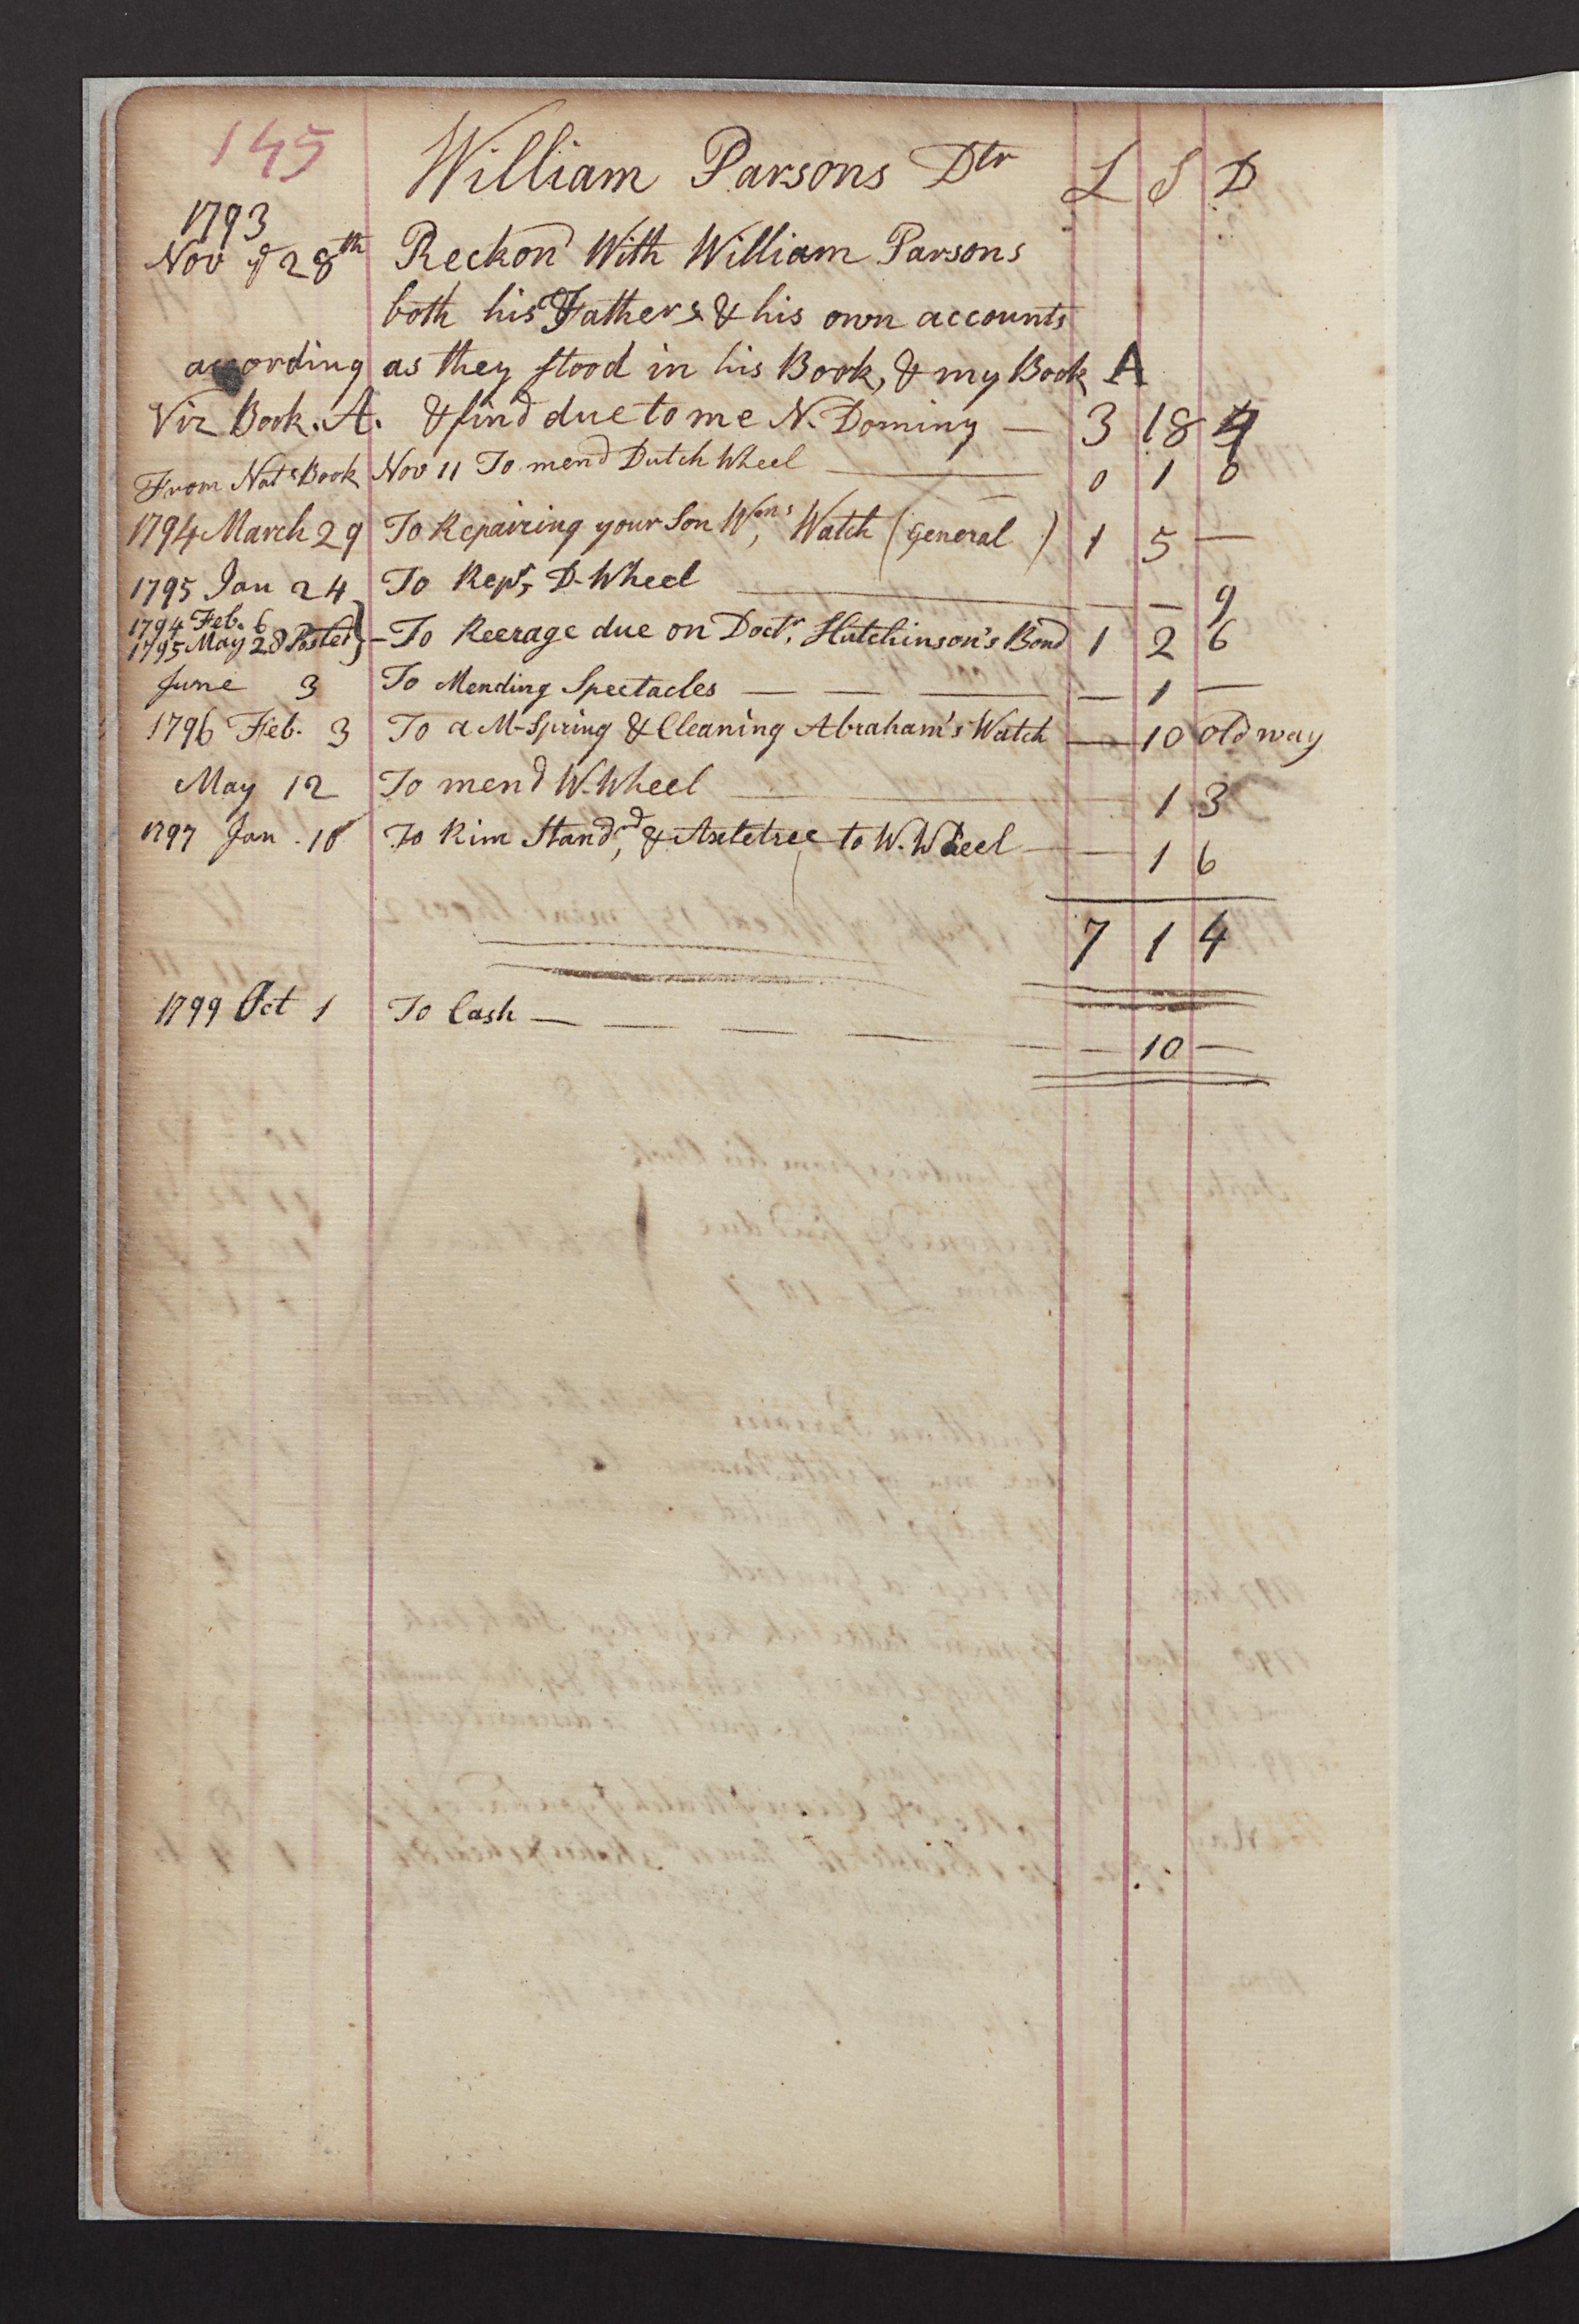 145 William Parsons Dtr L S D
1793
Nov ye 28th Reckond With William Parsons
both his Fathers & his own accounts
according as they stood in his Book, & my Book A
Viz Book. A. & find due to me N. Dominy — 3 18 4
From Nats Book Nov 11 To mend Dutch Wheel — 0 1 0
1794 March 29 To Repairing your Son Wms, Watch (General) 1 5 —
1795 Jan 24 To Repg, D-Wheel — — 9
1794 Feb. 6
1795 May 28 Posted } - To Reerage due on Doctr, Hutchinson's Bond 1 2 6
June 3 To Mending Spectacles — — — — 1 —
1796 Feb. 3 To a M-Spring & Cleaning Abraham's Watch — 10 old way
May 12 To mend W. Wheel — 1 3
1797 Jan. 10 To Rim Standrd, & Axletree to W. Wheel — 1 6
7 1 4
1799 Oct 1 To Cash — — — — — 10 —